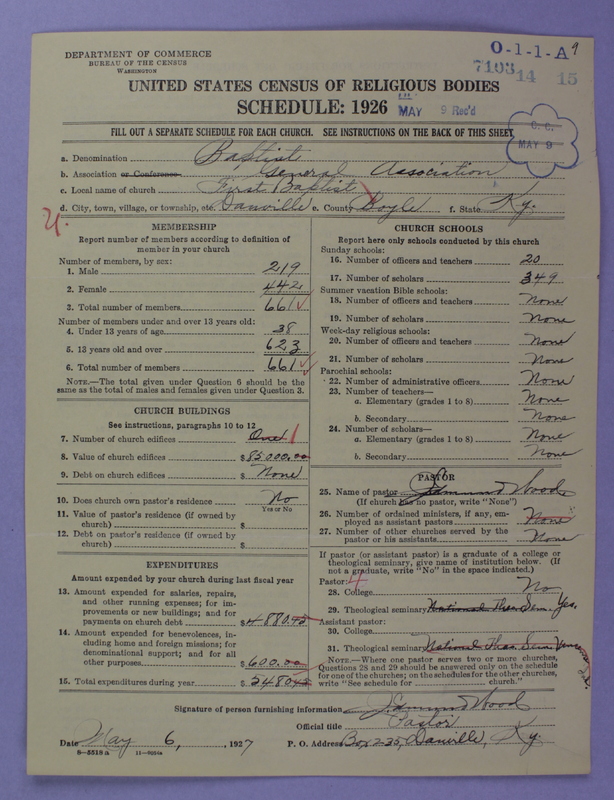 O-1-1-A 9
DEPARTMENT OF COMMERCE
BUREAU OF THE CENSUS
WASHINGTON
7103 14 15
UNITED STATES CENSUS OF RELIGIOUS BODIES
SCHEDULE: 1926
MAY 9 Rec'd
FILL OUT A SEPARATE SCHEDULE FOR EACH CHURCH. SEE INSTRUCTIONS ON THE BACK OF THIS SHEET
MAY 9
a. Denomination Baptist
b. Association or Conference General Association
c. Local name of church First Baptist
d. City, town, village, or township, etc. Danville e. County Boyle f. State Ky.
MEMBERSHIP
Report number of members according to definition of
member in your church
Number of members, by sex:
1. Male 219
2. Female 442
3. Total number of members 661
Number of members under and over 13 years old:
4. Under 13 years of age 38
5. 13 years old and over 623
6. Total number of members 661
NOTE.—The total given under Question 6 should be the
same as the total of males and females given under Question 3.
CHURCH BUILDINGS
See instructions, paragraphs 10 to 12
7. Number of church edifices One 1
8. Value of church edifices $85000.00
9. Debt on church edifices $ None
10. Does church own pastor's residence No
Yes or No
11. Value of pastor's residence (if owned by
church) $
12. Debt on pastor's residence (if owned by
church) $
EXPENDITURES
Amount expended by your church during last fiscal year
13. Amount expended for salaries, repairs,
and other running expenses; for im-
provements or new buildings; and for
payments on church debt $4880.42
14. Amount expended for benevolences, in-
cluding home and foreign missions; for
denominational support; and for all
other purposes $600.00
15. Total expenditures during year $5480.42
CHURCH SCHOOLS
Report here only schools conducted by this church
Sunday schools:
16. Number of officers and teachers 20
17. Number of scholars 349
Summer vacation Bible schools:
18. Number of officers and teachers None
19. Number of scholars None
Week-day religious schools:
20. Number of officers and teachers None
21. Number of scholars None
Parochial schools:
22. Number of administrative officers None
23. Number of teachers—
a. Elementary (grades 1 to 8) None
b. Secondary None
24. Number of scholars—
a. Elementary (grades 1 to 8) None
b. Secondary None
PASTOR
25. Name of pastor Edmund Wood
(If church has no pastor, write "None")
26. Number of ordained ministers, if any, em-
ployed as assistant pastors None
27. Number of other churches served by the
pastor or his assistants None
If pastor (or assistant pastor) is a graduate of a college or
theological seminary, give name of institution below. (If
not a graduate, write "No" in the space indicated.)
Pastor: 4
28. College No
29. Theological seminary National Theo. Sem. Yes.
Assistant pastor:
30. College
31. Theological seminary National Theo. Sem.
NOTE.—Where one pastor serves two or more churches,
Questions 28 and 29 should be answered only on the schedule
for one of the churches; on the schedules for the other churches,
write "See schedule for church."
Signature of person furnishing information Edmund Wood
Official title Pastor
Date May 6, 1927 P. O. Address Box 225, Danville, Ky.
8-5518a 11-9916a